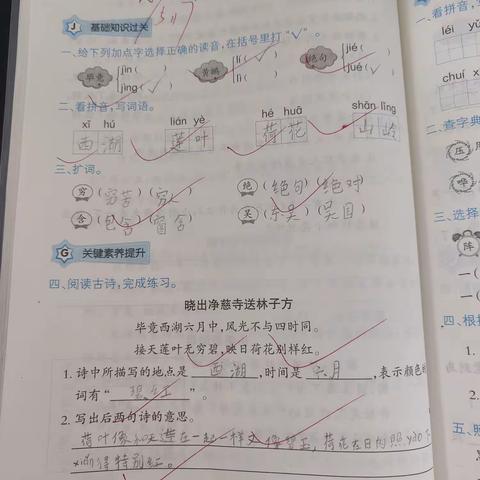 J 基础知识过关
一、给下列加点字选择正确的读音,在括号里打"√"。
毕竟 jìn( ) jìng(√) 黄鹂 lí(√) lì( ) 绝句 jié( ) jué(√)
二、看拼音,写词语。
xī hú lián yè hé huā shān lǐng
西湖 莲叶 荷花 山岭
三、扩词。
穷(穷苦)(穷人) 绝(绝句)(绝对)
含(包含)(富含) 吴(东吴)(吴国)
G 关键素养提升
四、阅读古诗,完成练习。
晓出净慈寺送林子方
毕竟西湖六月中,风光不与四时同。
接天莲叶无穷碧,映日荷花别样红。
1. 诗中所描写的地点是 西湖 ,时间是 六月 ,表示颜色的
词有" 碧、红 "。
2. 写出后两句诗的意思。
荷叶像和天连在一起一样 荷花在日的照 下
得特别红。
一、看拼音,
léi
chuí
二、查字典
压
哗
三、选择
阵
一(
一(
四、根
1.
2.
五、